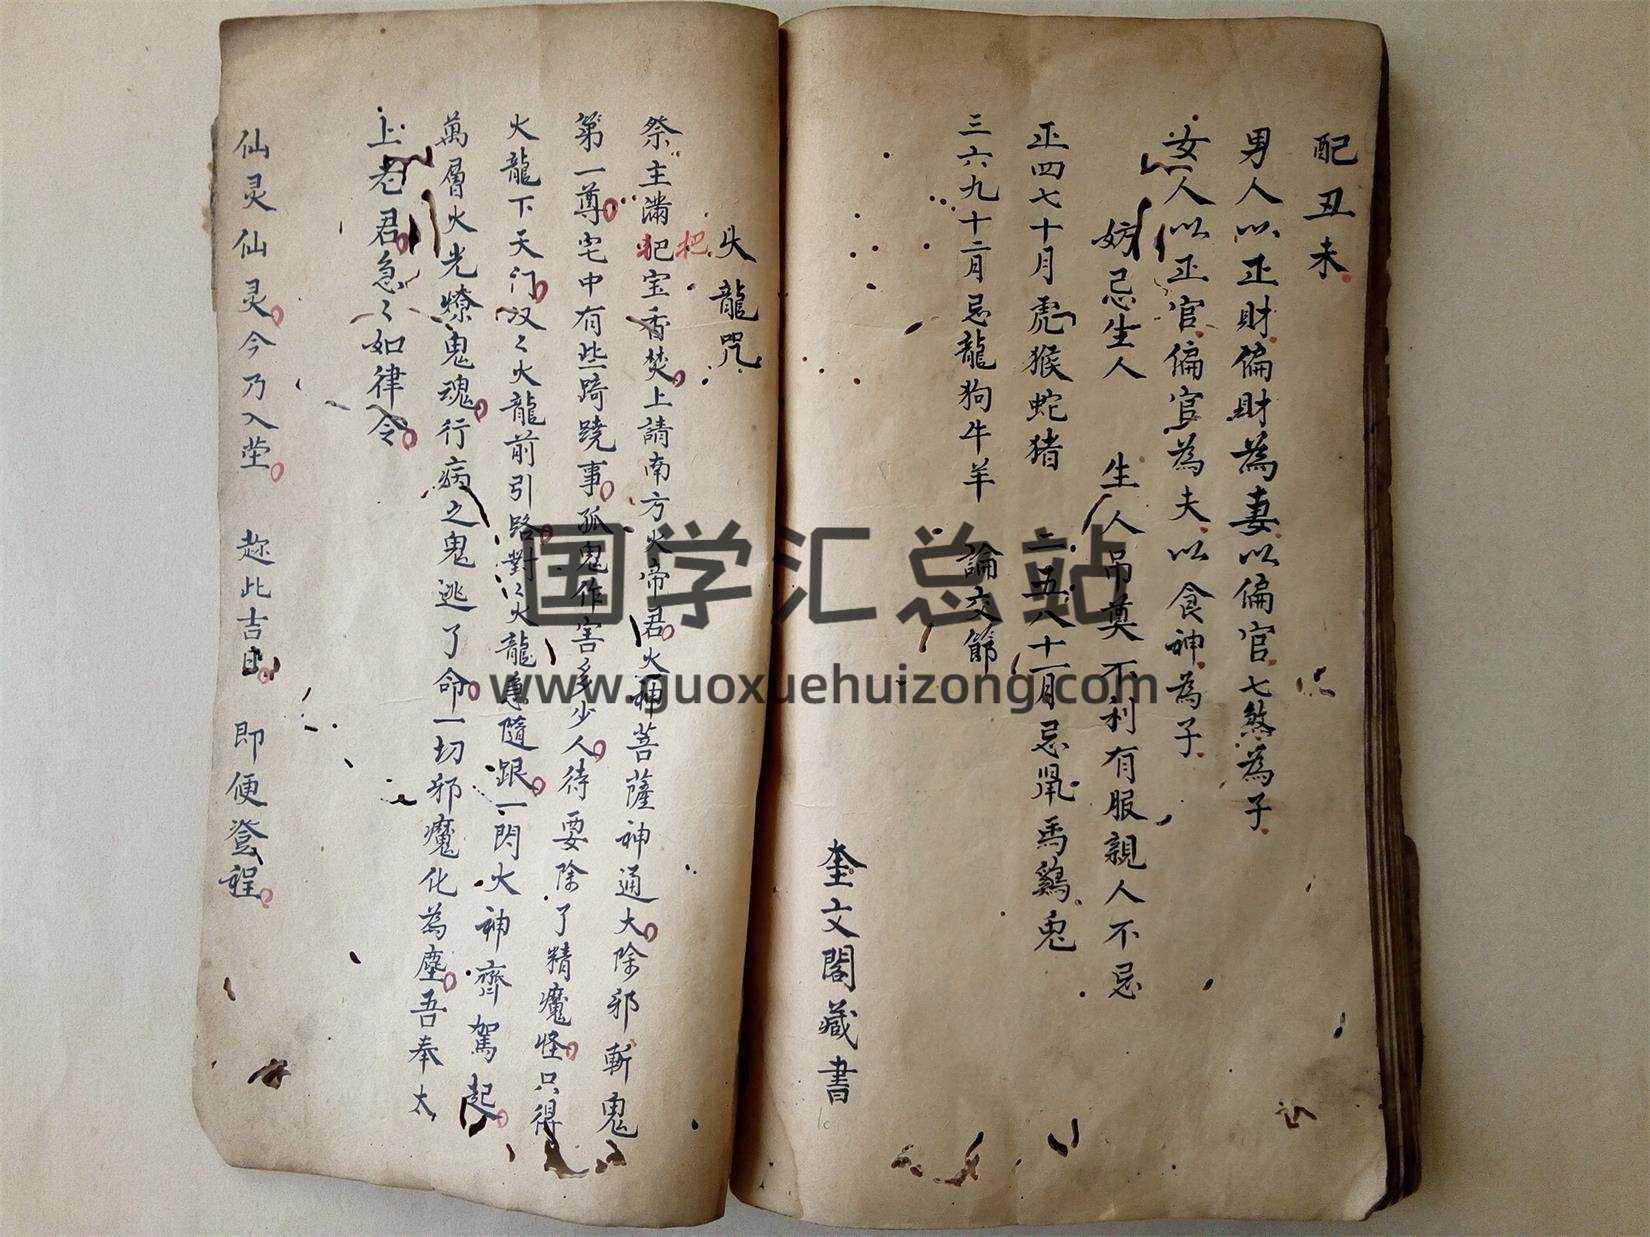 配丑未
男人以正財偏財為妻以偏官七煞為子
女人以正官偏官為夫以食神為子
妨忌生人 生人吊奠不利有服親人不忌
正四七十月虎猴蛇猪 二五八十一月忌鼠馬鷄兎
三六九十二月忌龍狗牛羊 論交節
奎文閣藏書
火龍咒
祭主满把宝香焚上請南方火帝君火神菩薩神通大除邪斬鬼
把
第一尊宅中有些蹊蹺事孤鬼作害多少人待要除了精魔怪只得
火龍下天门汉々火龍前引路對々火龍急隨跟一閃火神齊駕起
萬層火光燎鬼魂行病之鬼逃了命一切邪魔化為塵吾奉太
上老君急々如律令
仙灵仙灵今乃入茔 趂此吉日 即便登程
国学汇总站
www.guoxuehuizong.com